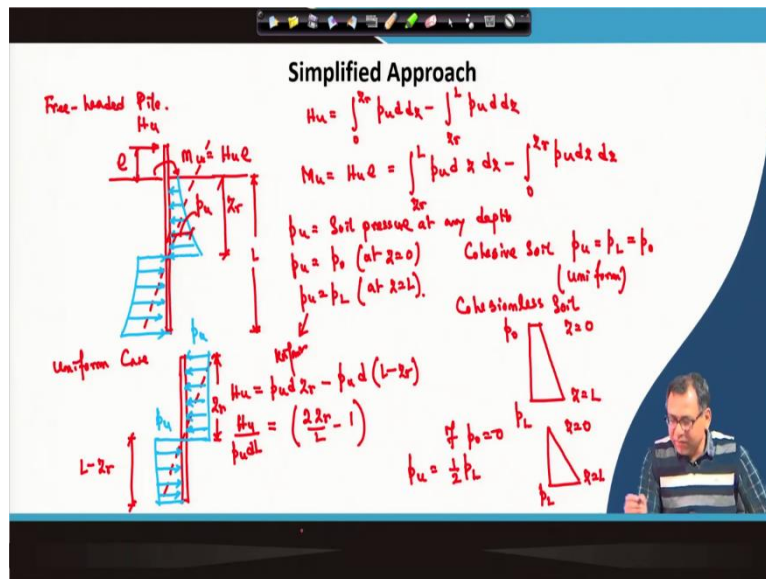 Simplified Approach
Free-headed Pile.
Hu
e
Mu = Hu e
pu
zr
L
Hu = ∫₀^zr pu d dz − ∫zr^L pu d dz
Mu = Hu e = ∫zr^L pu d z dz − ∫₀^zr pu d z dz
pu = Soil pressure at any depth
pu = p0 (at z=0)
pu = pL (at z=L).
Cohesive Soil pu = pL = p0
(uniform)
Cohesionless Soil
p0 z=0
pL z=L
Uniform Case
pu
zr
pu
L-zr
Hu = pu d zr − pu d (L-zr)
Hu/pu dL = (2zr/L − 1)
If p0=0
pu = 1/2 pL
z=0
pL z=L